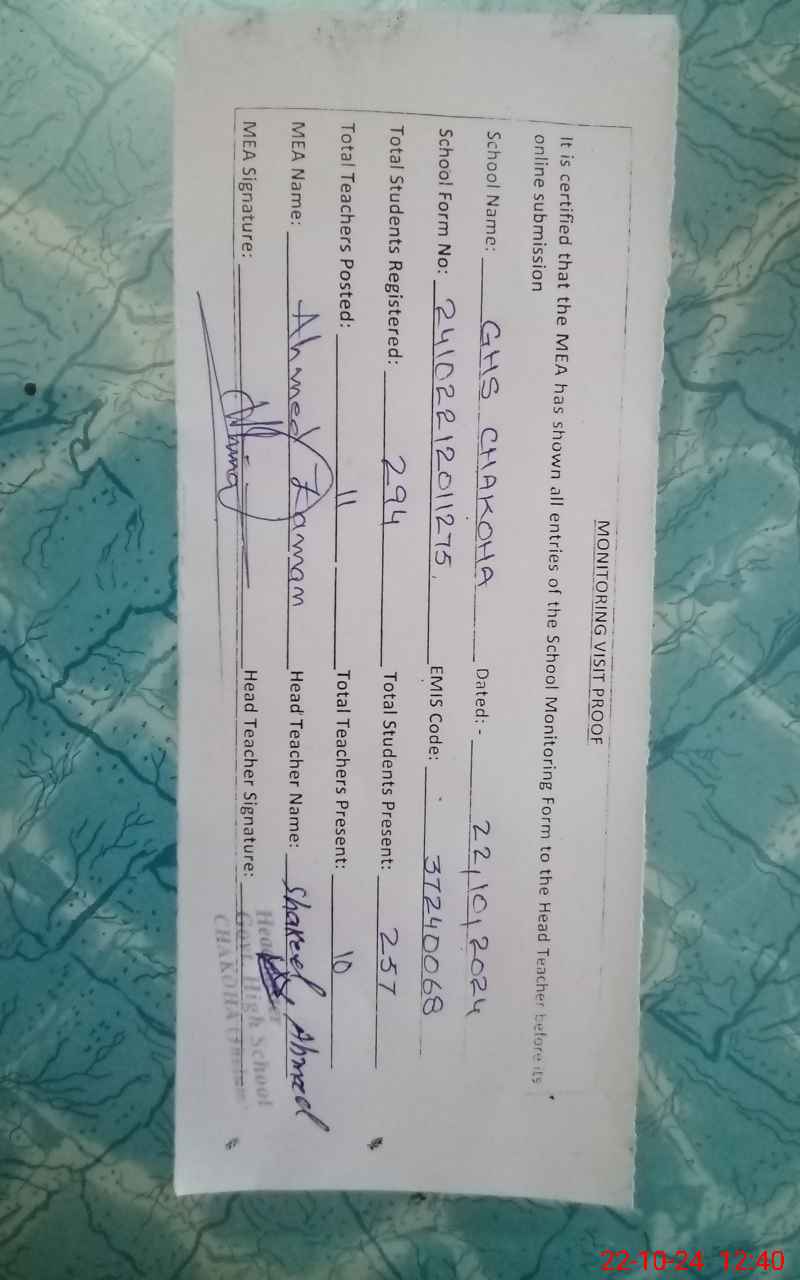 MONITORING VISIT PROOF
It is certified that the MEA has shown all entries of the School Monitoring Form to the Head Teacher before its
online submission
School Name: GHS CHAKOHA Dated: - 22,10,2024
School Form No: 24102212011275. EMIS Code: 37240068
Total Students Registered: 294 Total Students Present: 257
Total Teachers Posted: 11 Total Teachers Present: 10
MEA Name: Ahmed Zaman Head Teacher Name: Shakeel Ahmed
MEA Signature: Head Teacher Signature:
Govt. High School
CHAKOHA
22-10-24 12:40